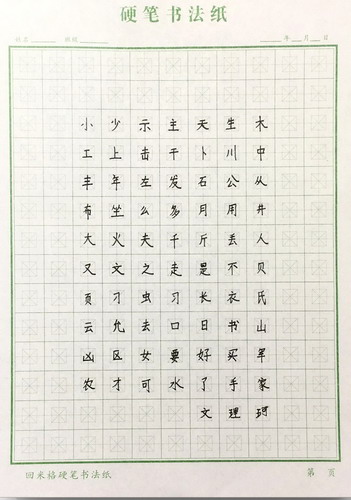 硬笔书法纸
姓名 班级 年 月 日
小少示主天生木
工上击干卜川中
丰年左发石公从
布坐么多月用井
大火夫千斤丢人
又文之走是不贝
页刁虫习长衣氏
云允去口日书山
凶区女要好买军
农才可水了手家
文理珂
回米格硬笔书法纸 第 页